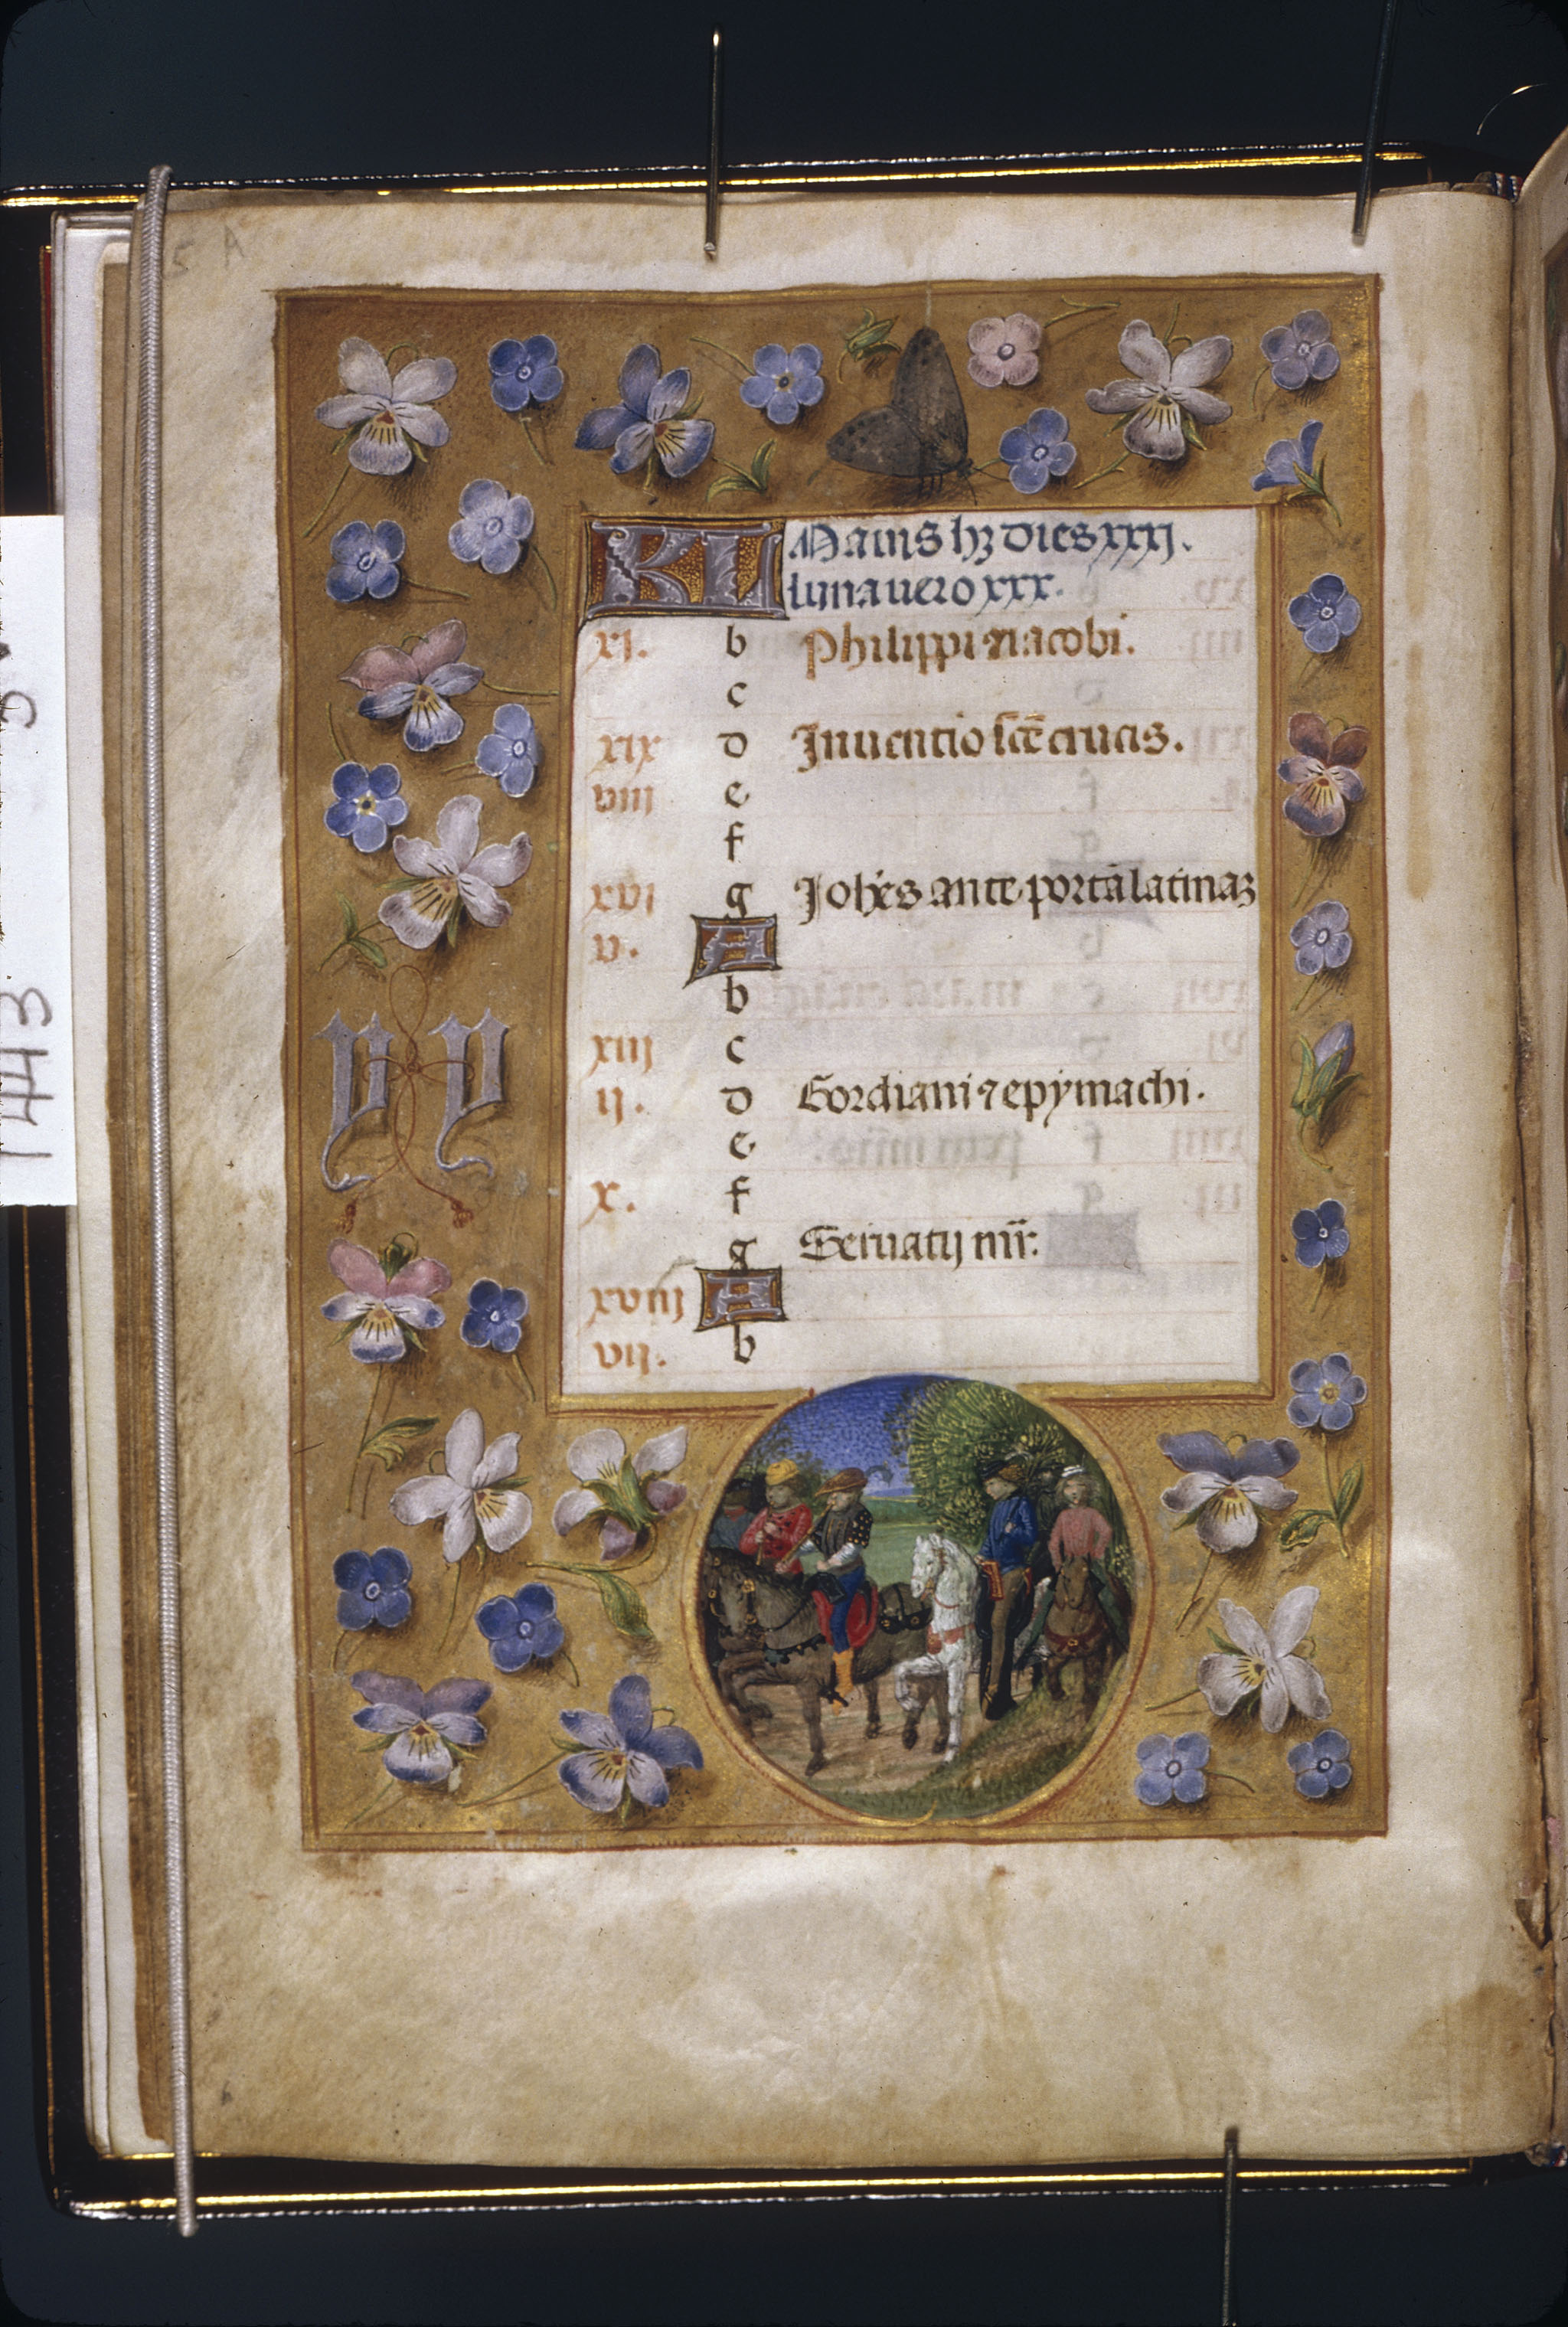 5 A
KL Maius hꝫ dies xxxj.
luna uero xxx.
xj. b Philippi ⁊ iacobi.
c
xix d Inuentio sc̄e crucis.
viij e
f
xvj g Joh̄es ante portā latinaꝫ
v. A
b
xiij c
ij. d Gordiani ⁊ epymachi.
e
x. f
g Seruatij mr̄:
xviij A
vij. b
V V
1443